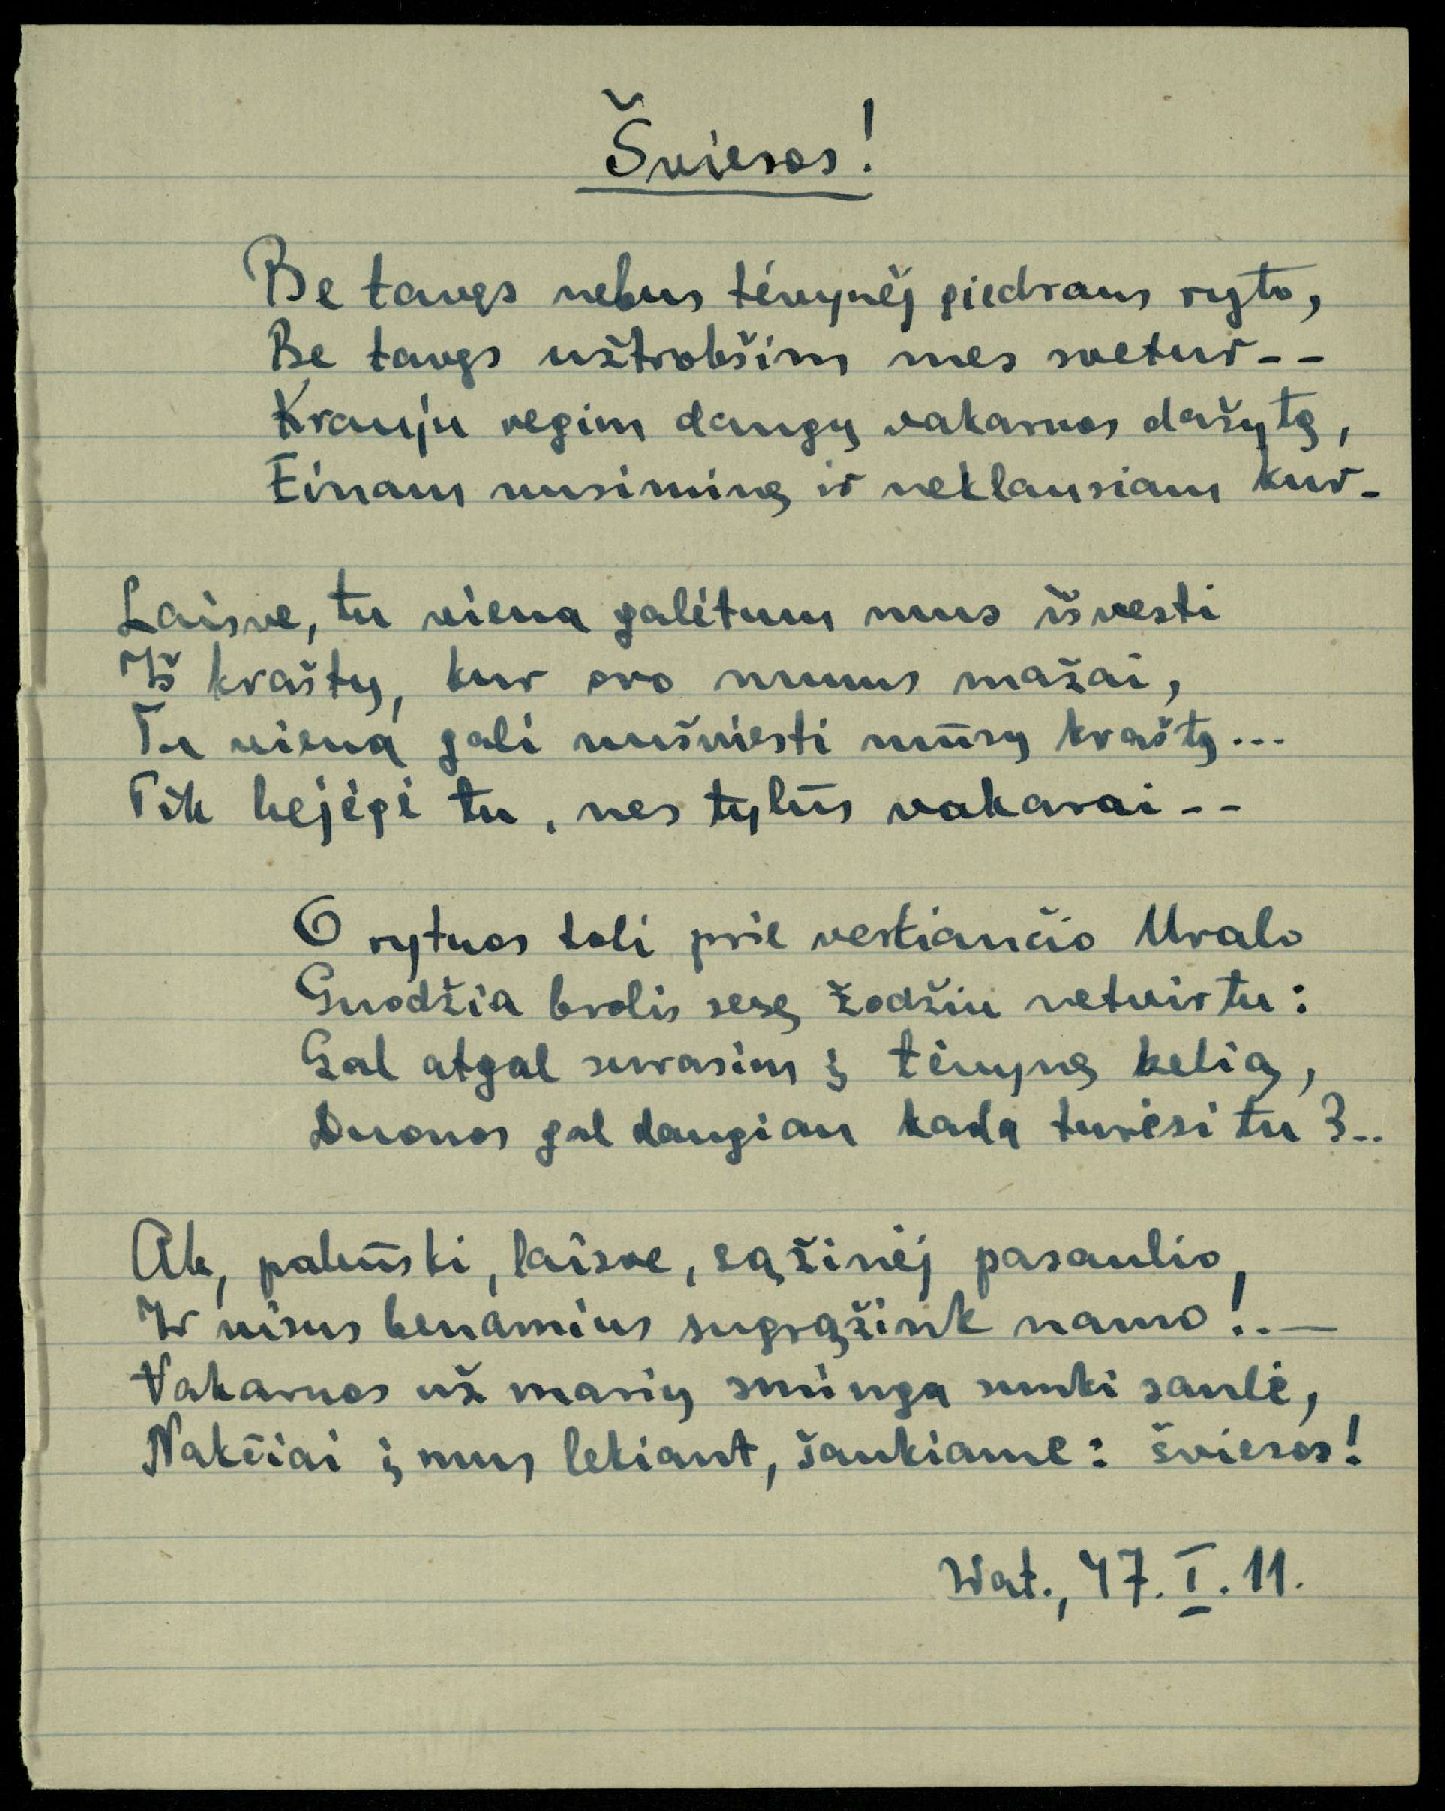 Šviesos!
Be tavęs nebus tėvynėj giedraus ryto,
Be tavęs užtrokšim mes svetur--
Krauju regim dangų vakaruos dažytą,
Einam nusiminę ir neklausiam kur-
Laisve, tu viena galėtum mus išvesti
Iš kraštų, kur oro mums mažai,
Tu viena gali nušviesti mūsų kraštą...
Tik bejėgė tu, nes tylūs vakarai--
O rytuos toli prie verkiančio Uralo
Guodžia brolis sesę žodžiu netvirtu:
Gal atgal surasim į tėvynę kelią,
Duonos gal daugiau kada turėsi tu?..
Ak, pabuski, laisve, sąžinėj pasaulio,
Ir visus benamius sugrąžink namo!..—
Vakaruos už marių sminga sunki saulė,
Nakčiai į mus lekiant, šaukiame: šviesos!
Wat., 47.I.11.